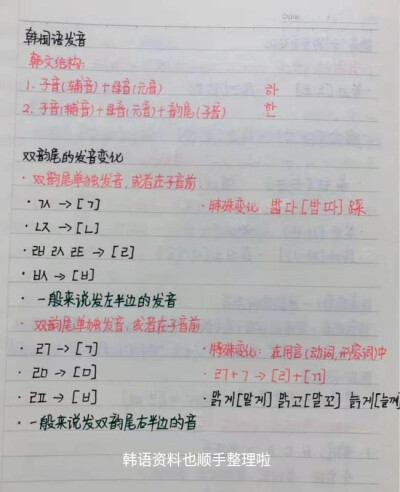 Date
韩国语发音
韩文结构:
1. 子音(辅音)+母音(元音) 하
2. 子音(辅音)+母音(元音)+韵尾(子音) 한
双韵尾的发音变化
· 双韵尾单独发音,或者在子音前
· ㄳ → [ㄱ] · 特殊变化: 밟다 [밥따] 踩
· ㄵ → [ㄴ]
· ㄼ ㄽ ㄾ → [ㄹ]
· ㅄ → [ㅂ]
· 一般来说发左半边的发音
· 双韵尾单独发音,或者在子音前
· ㄺ → [ㄱ] · 特殊变化: 在用言(动词,形容词)中
· ㄻ → [ㅁ] · ㄺ+ㄱ → [ㄹ]+[ㄲ]
· ㄿ → [ㅂ] · 맑게[말게] 맑고[말꼬] 늙게[늘께
· 一般来说发双韵尾右半边的音
韩语资料也顺手整理啦